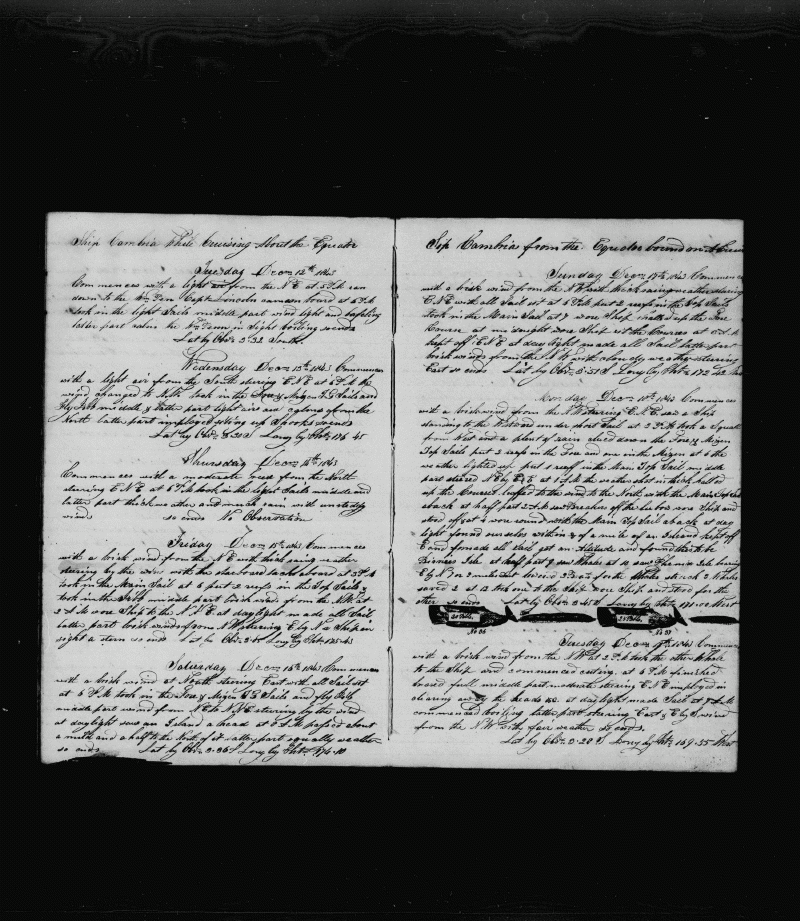 Ship Cambria While Cruising About the Equator
Tuesday Decm 12th 1843
Commences with a light air from the NE at 5 P.M ran
down to the Wm Penn Capt Lincoln came on board at 9 P.M
took in the light Sails middle part wind light and baffling
latter part calm the Wm Penn in Sight so ends
Lat by Obs 3.32 South
Wednesday Decm 13th 1843 Commences
with a light air from the South steering E.N.E at 6 P.M the
wind changed to North took in the Fore & Mizen T.G Sails and
Fly Jib middle & latter part light airs and calms from the
North latter part employed so ends
Lat by Obs 3.31 S Long by 176.45
Thursday Decm 14th 1843
Commences with a moderate wind from the North
steering E.N.E at 6 P.M took in the light Sails middle and
latter part thick weather and much rain with unsteady
winds so ends No Observation
Friday Decm 15th 1843 Commences
with a brisk wind from the N.E with thick rainy weather
steering by the wind with the starboard tacks aboard at 3 P.M
took in the Main Sail at 6 put 2 reefs in the Top Sails
took in the Jib middle part brisk wind from the N.N.E at
2 A.M wore Ship to the N.N.E at daylight made all Sail
latter part brisk winds from N.W steering E by N a Ship in
sight a stern so ends Lat by Obs 3. S Long by 175.43
Saturday Decm 16th 1843 Commences
with a brisk wind at North steering East with all Sail set
at 6 P.M took in the Fore & Mizen T.G Sails and Fly Jib
middle part wind from N.E to N.N.E steering by the wind
at daylight saw an Island a head at 8 A.M passed about
a mile and a half to the North of it latter part squally weather
so ends Lat by Obs 3.36 S Long by 174.10
Sip Cambria from the Equator bound on A Cruise
Sunday Decm 17th 1843 Commences
with a brisk wind from the N.W with thick rainy weather steering
E.N.E with all Sail set at 6 P.M put 2 reefs in the Top Sails
took in the Main Sail at 7 wore Ship hauled up the Fore
Course at midnight wore Ship set the Courses at 1 A.M
kept off E.N.E at daylight made all Sail latter part
brisk winds from the N.W with cloudy weather steering
East so ends Lat by Obs 3.31 S Long by 172.42
Monday Decm 18th 1843 Commences
with a brisk wind from the N.W steering E.N.E saw a Ship
standing to the Westward under short Sail at 2 P.M took a Squall
from West with plenty of rain clued down the Fore & Mizen
Top Sails put 2 reefs in the Fore and one in the Mizen at 6 the
weather lighted up put 1 reef in the Main Top Sail middle
part steered N.E by E at 1 A.M the weather shut in thick hauled
up the Courses luffed to the wind to the North with the Main Top Sail
aback at half past 2 A.M saw Breakers off the lee bow wore Ship and
stood off at 4 wore round with the Main Top Sail aback at day
light found ourselves within of a mile of an Island kept off
E and made all Sail got an Altitude and found it to be
Birnies Isle at half past 9 saw Whales at 10 saw Phoenix Isle bearing
E by N 2 or 3 miles lowered for the Whales struck 2 Whales
saved 2 at 12 took one to the Ship wore Ship and stood for the
other so ends Lat by Obs 3.45 S Long by 171.00 West
20 bbls No 36
25 bbls No 37
Tuesday Decm 19th 1843 Commences
with a brisk wind from the N.W at 2 P.M took the other Whale
to the Ship and commenced cutting at 6 P.M finished
board full middle part moderate steering E.N.E employed in
clearing away the heads &c at daylight made Sail at 7 A.M
commenced boiling latter part steering East & E by S wind
from the N.W with fair weather so ends
Lat by Obs 3.28 S Long by 169.35 West